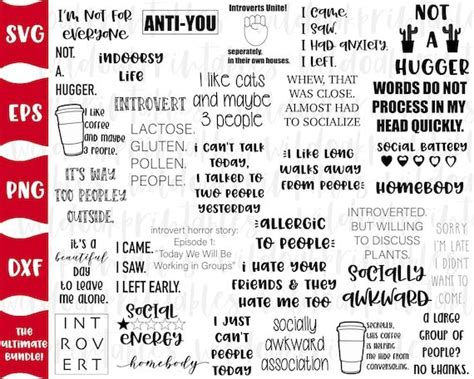 SVG
EPS
PNG
DXF
The
Ultimate
Bundle!
I'm not for
everyone.
NOT.
A.
HUGGER.
indoorsy
life
ANTI-YOU
Introverts Unite!
seperately.
in their own houses.
I came.
I saw.
I had anxiety.
I left.
NOT
A
HUGGER
I like
coffee
and maybe
3 people.
INTROVERT
I like cats
and maybe
3 people
WHEW, THAT
WAS CLOSE.
ALMOST HAD
TO SOCIALIZE
WORDS DO NOT
PROCESS IN MY
HEAD QUICKLY.
LACTOSE.
GLUTEN.
POLLEN.
PEOPLE.
i can't talk
today,
I talked to
two people
yesterday
i like long
walks away
from people
social battery
homebody
IT'S WAY
TOO PEOPLEY
OUTSIDE.
introvert horror story:
Episode 1:
"Today We Will Be
Working in Groups"
allergic
to people
INTROVERTED.
BUT WILLING
TO DISCUSS
PLANTS.
SORRY
I'M LATE
I DIDN'T
WANT TO
COME
it's a
beautiful
day
to leave
me alone.
I CAME.
I SAW.
I LEFT EARLY.
i hate your
friends & they
hate me too
socially
awkward
INT
ROV
ERT
social
energy
homebody
I JUST
CAN'T
PEOPLE
TODAY
socially
awkward
association
secretly,
this coffee
is helping
me hide from
conversating.
a large
group of
people?
no thanks.